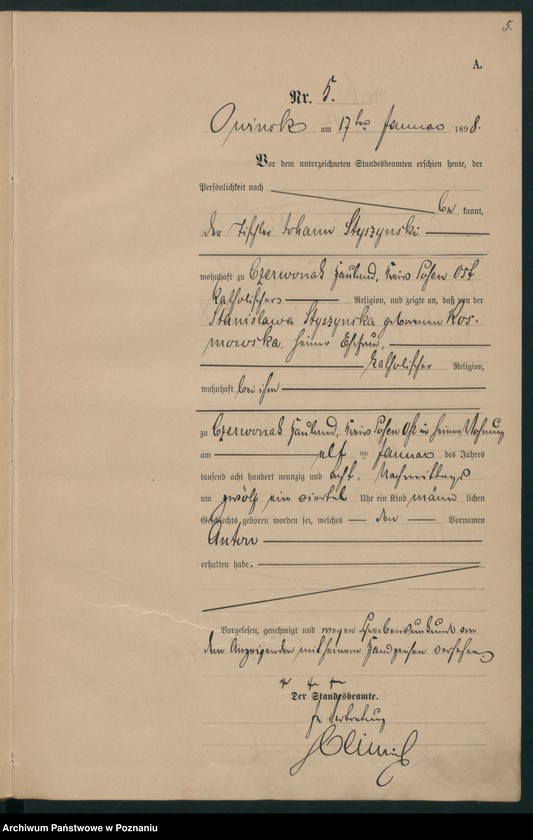 5.
A.
Nr. 5.
Owinsk am 17ten Januar 1898.
Vor dem unterzeichneten Standesbeamten erschien heute, der
Persönlichkeit nach
be kannt,
der Tischler Johann Styszynski
wohnhaft zu Czerwonak Hauland, Kreis Posen Ost
katholischer Religion, und zeigte an, daß von der
Stanislawa Styszynska geborenen Kos-
mowska, seiner Ehefrau,
katholischer Religion,
wohnhaft bei ihm
zu Czerwonak Hauland, Kreis Posen Ost in seiner Wohnung
am elf ten Januar des Jahres
tausend acht hundert neunzig und acht, Nachmittags
um zwölf ein viertel Uhr ein Kind männ lichen
Geschlechts geboren worden sei, welches den Vornamen
Anton
erhalten habe.
Vorgelesen, genehmigt und wegen Schreibensunkunde von
dem Anzeigenden mit seinem Handzeichen versehen
+ + +
Der Standesbeamte.
In Vertretung
Archiwum Państwowe w Poznaniu